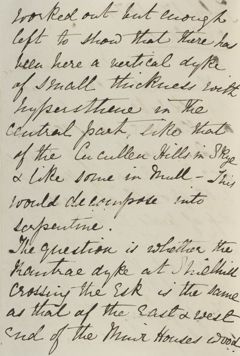 worked out but enough
left to show that there has
been here a vertical dyke
of small thickness with
hypersthene in the
central part, like that
of the Cucullen Hills in Skye
& like some in Mull – This
would decompose into
serpentine.
The question is whether the
dyke at
crossing the Esk is the same
as that at the East & west
End of the Muir Houses wood